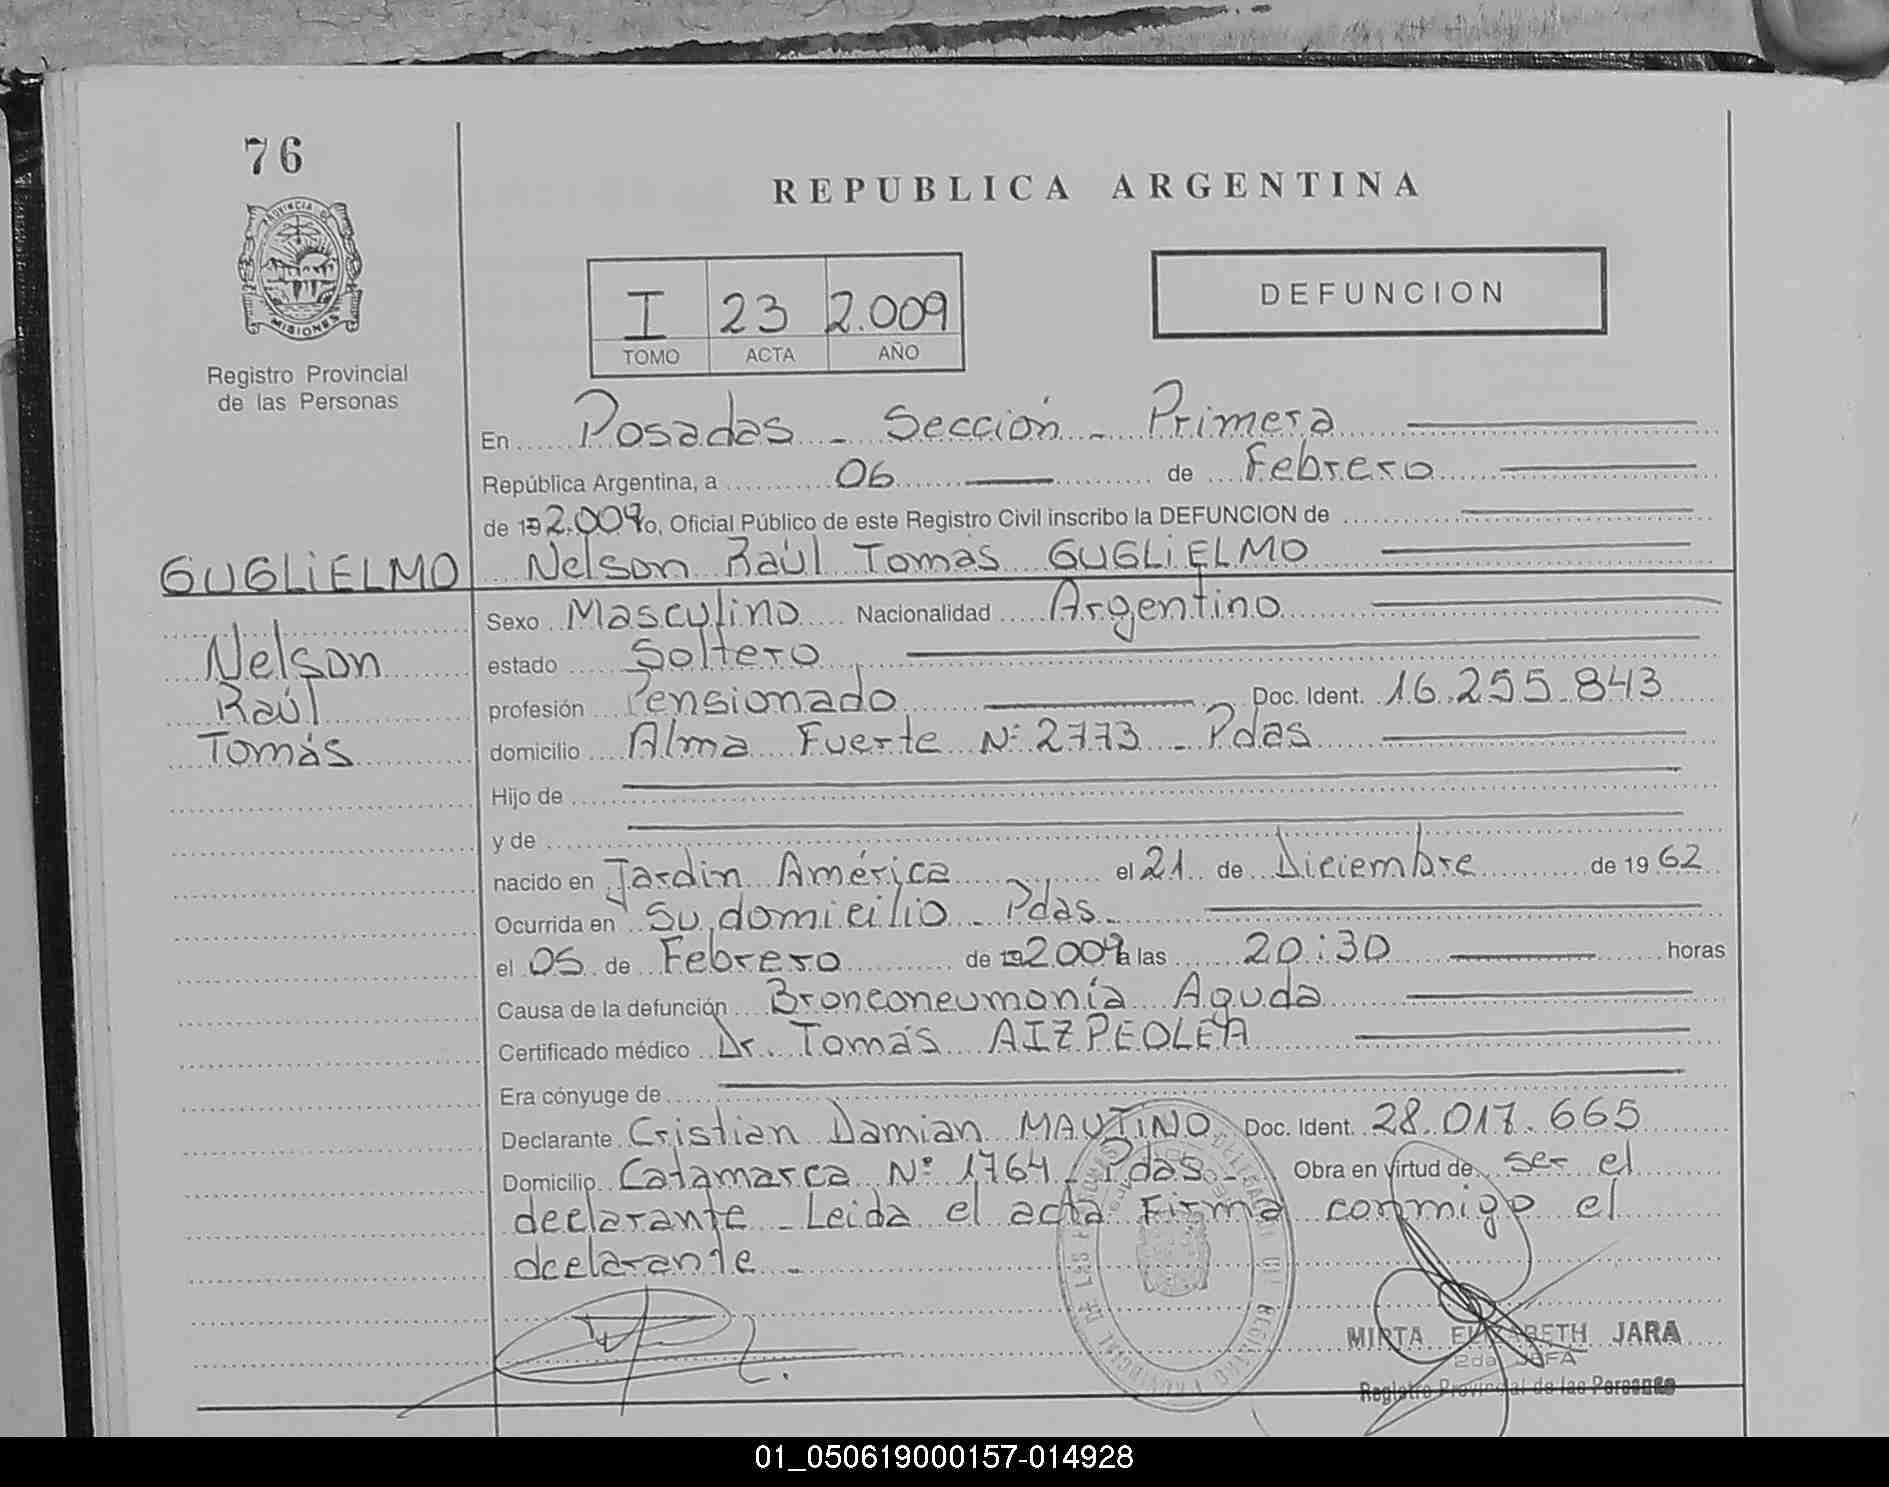 76
PROVINCIA DE
MISIONES
Registro Provincial
de las Personas
REPUBLICA ARGENTINA
I 23 2.009
TOMO ACTA AÑO
DEFUNCION
En Posadas - Sección - Primera
República Argentina, a 06 de Febrero
de 19 2.009 o, Oficial Público de este Registro Civil inscribo la DEFUNCION de
GUGLIELMO Nelson Raúl Tomás GUGLIELMO
Sexo Masculino Nacionalidad Argentino
Nelson
estado Soltero
Raúl
profesión Pensionado Doc. Ident. 16.255.843
Tomás
domicilio Alma Fuerte Nº 2773 - Pdas
Hijo de
y de
nacido en Jardin América el 21 de Diciembre de 19 62
Ocurrida en su domicilio - Pdas.
el 05 de Febrero de 19 2.009 a las 20:30 horas
Causa de la defunción Bronconeumonía Aguda
Certificado médico Dr. Tomás AIZPEOLEA
Era cónyuge de
Declarante Cristian Damian MAUTINO Doc. Ident. 28.017.665
Domicilio Catamarca Nº 1764 - Pdas - Obra en virtud de ser el
declarante - Leida el acta Firma conmigo el
declarante -
MIRTA ELIZABETH JARA
2da JEFA
Registro Provincial de las Personas
01_050619000157-014928